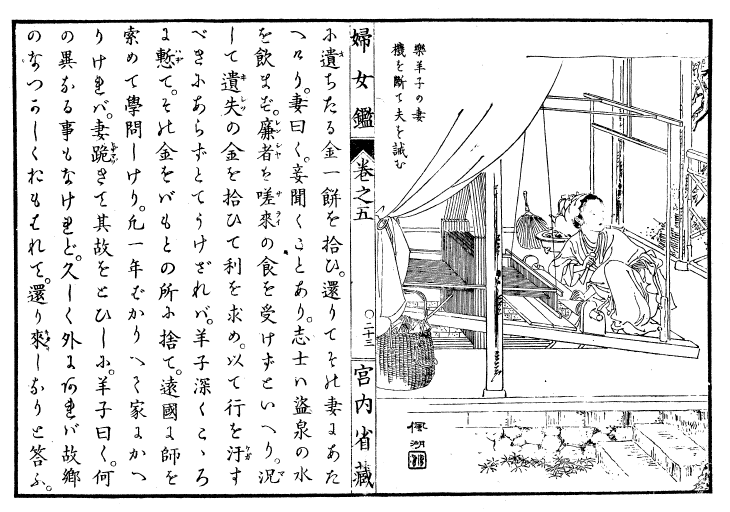 樂羊子の妻
機を斷て夫を誡む
佩湖
婦女鑑 卷之五 ○二十三 宮内省藏
に遺ちたる金一餅を拾ひ。還りてその妻にあた
へけり。妻曰く。妾聞くことあり。志士ハ盜泉の水
を飲まず。廉者は嗟來の食を受けずといへり。況
して遺失の金を拾ひて利を求め。以て行を汙す
べきにあらずとてうけざれバ。羊子深くこゝろ
に慙て。その金をバもとの所に捨て。遠國に師を
索めて學問しけり。凡一年ばかりへて家にかへ
りければ。妻跪きて其故をとひしに。羊子曰く。何
の異なる事もなけれど。久しく外にあれバ故鄉
のなつかしくおもはれて。還り來しなりと答ふ。